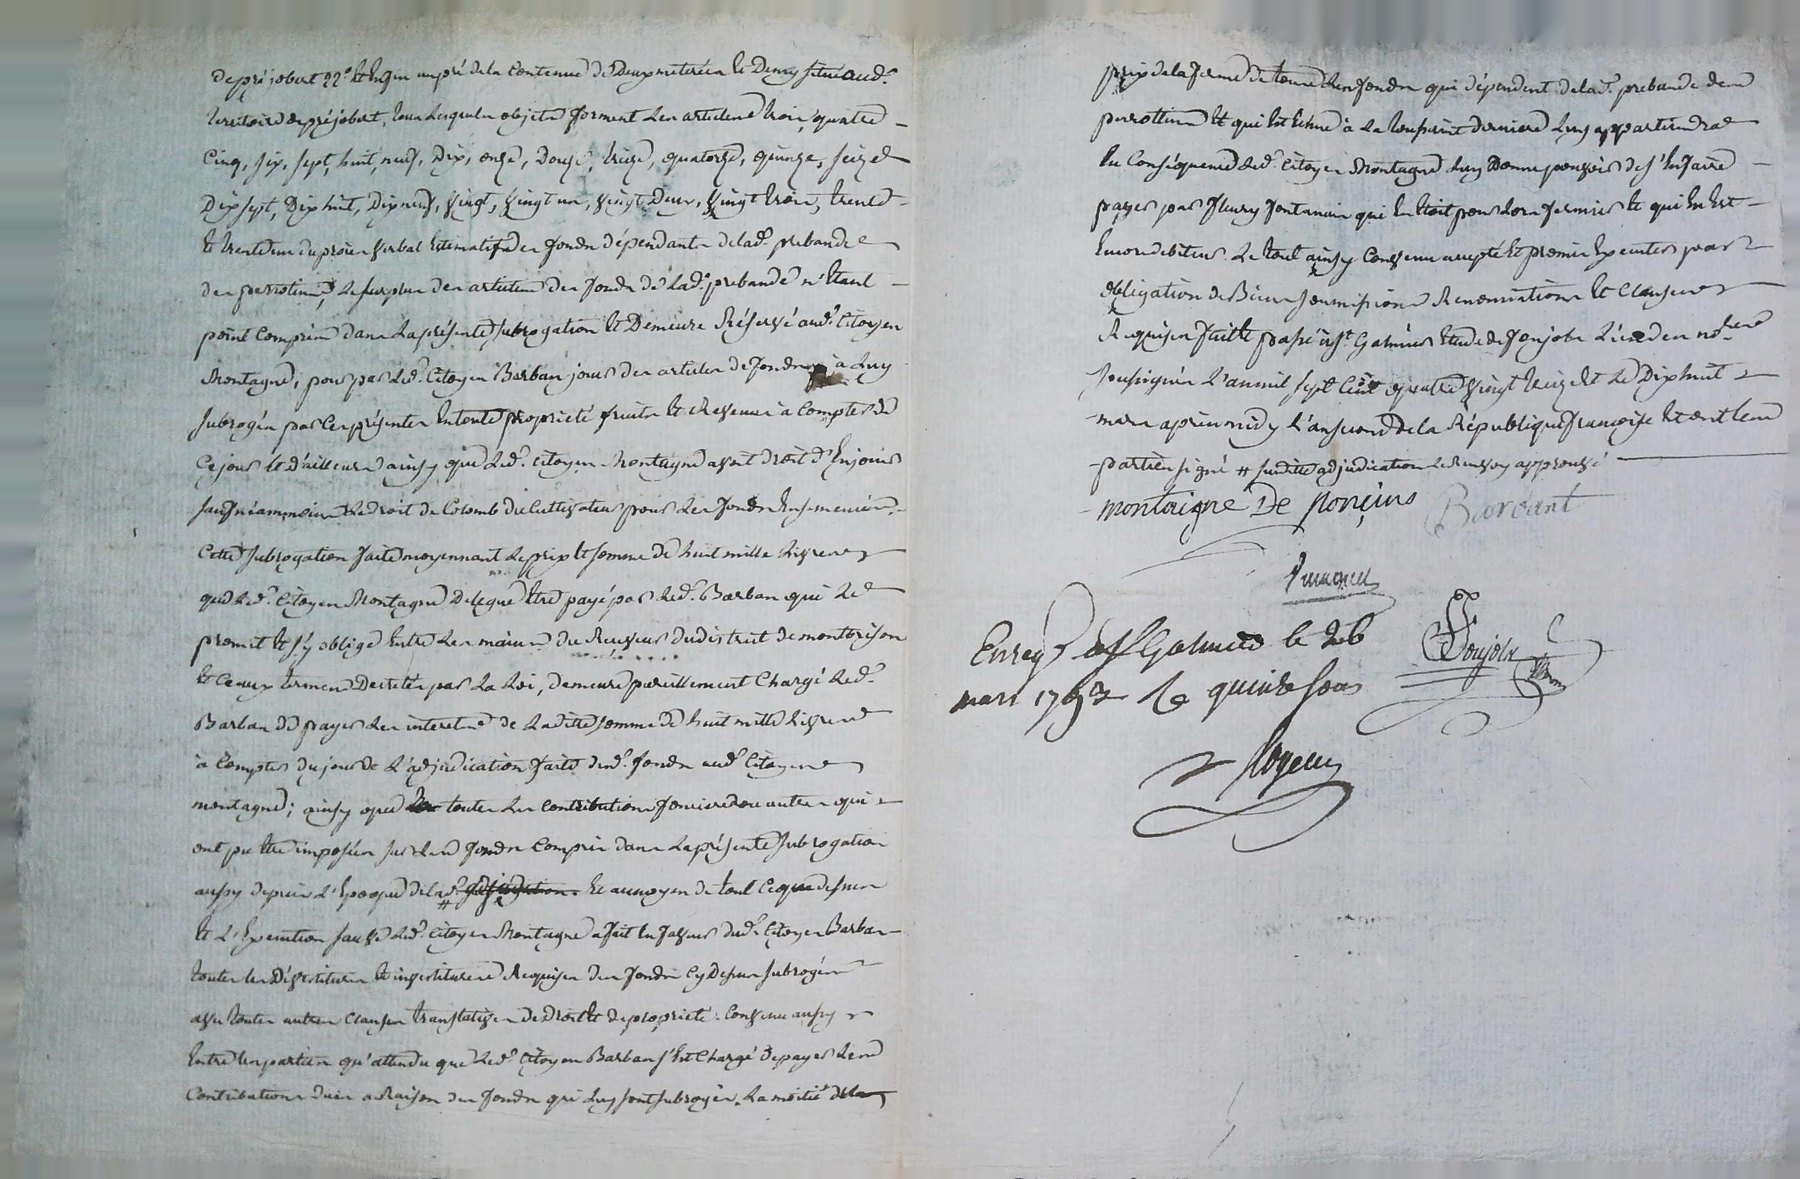 de préjobert 22.º Et Enfin un pré de la Contenue de Deux meterées Et Demy situé aud.
territoire de préjobert, tous Lesquels objets forment Les articles trois, quatre
Cinq, six, sept, huit, neuf, Dix, onze, Douze, treize, quatorze, quinze, seize
Dix sept, Dix huit, Dix neuf, vingt, vingt un, vingt Deux, vingt trois, trente
Et trente un du procès verbal Estimatif des fonds dépendants de lad. prebande
des perrotins, Le surplus des articles des fonds de Lad. prebande n'Etant
point Compris dans La présente subrogation Et Demeure Réservé aud. Citoyen
Montagne, pour par Led. Citoyen Barban jouir des articles de fonds à Luy
subrogés par Ces présentes En toute propriété fruits Et Revenus à Compter de
Ce jour Et d'ailleurs ainsy que Led. Citoyen Montagne avoit droit d'En jouir
sauf néammoins Le droit de Colomb du Cultivateur pour Les fonds Ensemencés.
Cette subrogation faite moyennant Le prix Et somme de huit mille Livres
que Led. Citoyen Montagne Delegue Etre payé par Led. Barban qui Le
promet Et s'y oblige Entre Les mains du Receveur du district de montbrison
Et Ce aux termes Decretés par La Loi, demeure pareillement Chargé Led.
Barban de payer Les interets de Laditte somme de huit mille Livres
à Compter du jour de L'adjudication faite desd. fonds aud. Citoyen
montagne; ainsy que toutes Les Contributions foncieres ou autres qui
ont pu Etre imposées sur Les fonds Compris dans La présente subrogation
aussy depuis L'Epoque de lad. # adjudication. Et au moyen de tout Ce que dessus
Et L'Execution sauve Led. Citoyen Montagne a fait En faveur dud. Citoyen Barban
toutes Les Dévestitures Et investitures Requises des fonds Cy Dessus subrogés
avec toutes autres Clauses translatives de Droit Et de propriété. Convenu aussy
Entre Les parties qu'attendu que Led. Citoyen Barban s'Est Chargé de payer Les
Contributions dues à Raison des fonds qui Luy sont subrogés, La moitié de la
prix de la ferme de tous Les fonds qui dépendent de lad. prebande des
perrottins Et qui Est Echue à La toussaint derniere Luy appartiendra
En Conséquence Led. Citoyen Montagne Luy Donne pouvoir de s'En faire
payer par fleury fontanais qui En Etoit pour Lors fermier Et qui En Est
Encore debiteur. Le tout ainsy Convenu accepté Et promis Executer par
obligation de Biens soumissions Renonciations Et Clauses
Requises fait Et passé à St. Galmier Etude de foujols L'un des no.res
soussignés L'an mil sept Cent quatre vingt treize Et Le Dix huit
mars après midy L'an second de la République françoise Et ont Les
parties signé # susditte adjudication Le Renvoy approuvé
montaigne De ponçins Barbant
foujols
Enreg.é à St Galmier le 26
mars 1793 quinze sous